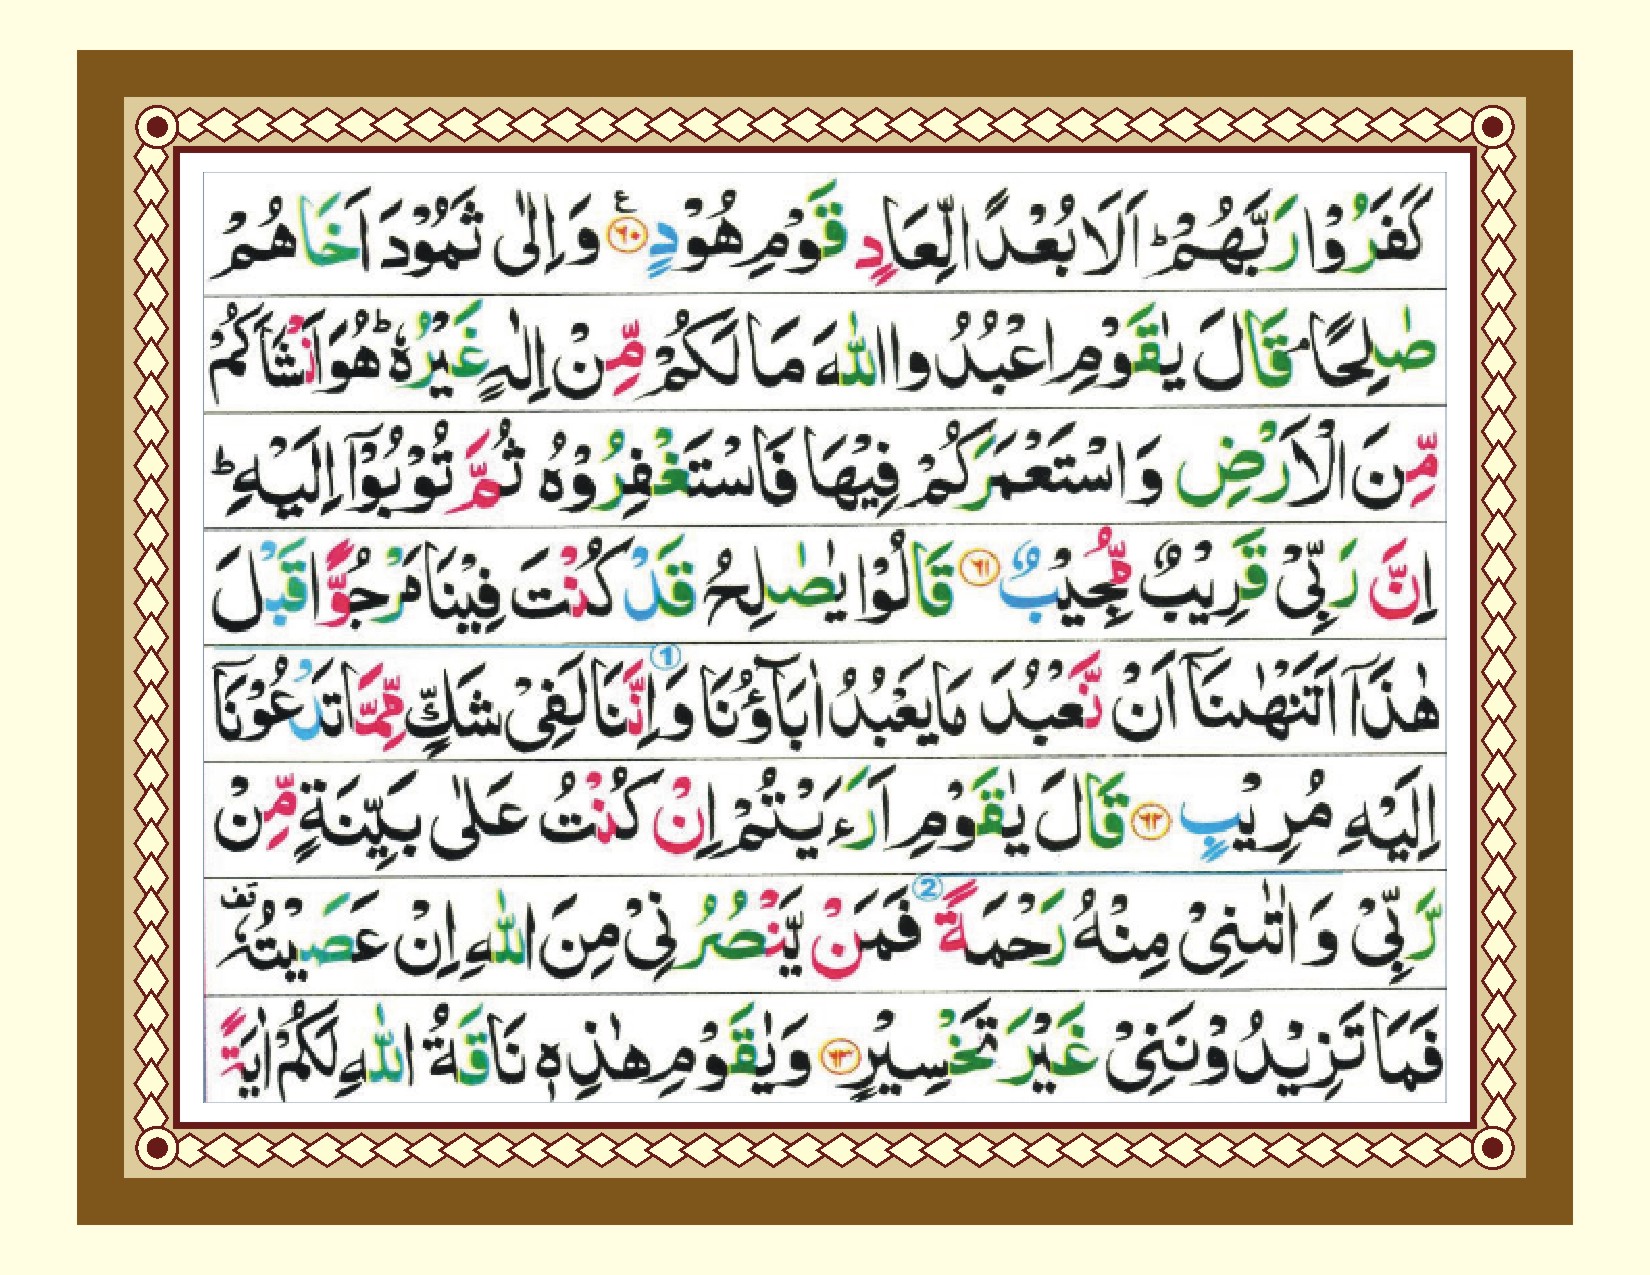 كَفَرُوْا رَبَّهُمْ ؕ اَلَا بُعْدًا لِّعَادٍ قَوْمِ هُوْدٍ ۝۶۰ ع وَ اِلٰى ثَمُوْدَ اَخَاهُمْ
صٰلِحًا ۘ قَالَ يٰقَوْمِ اعْبُدُوا اللّٰهَ مَا لَكُمْ مِّنْ اِلٰهٍ غَيْرُهٗ ؕ هُوَ اَنْشَاَكُمْ
مِّنَ الْاَرْضِ وَ اسْتَعْمَرَكُمْ فِيْهَا فَاسْتَغْفِرُوْهُ ثُمَّ تُوْبُوْۤا اِلَيْهِ ؕ
اِنَّ رَبِّيْ قَرِيْبٌ مُّجِيْبٌ ۝۶۱ قَالُوْا يٰصٰلِحُ قَدْ كُنْتَ فِيْنَا مَرْجُوًّا قَبْلَ
هٰذَاۤ اَتَنْهٰىنَاۤ اَنْ نَّعْبُدَ مَا يَعْبُدُ اٰبَآؤُنَا وَ اِنَّنَا لَفِيْ شَكٍّ مِّمَّا تَدْعُوْنَاۤ 1
اِلَيْهِ مُرِيْبٍ ۝۶۲ قَالَ يٰقَوْمِ اَرَءَيْتُمْ اِنْ كُنْتُ عَلٰى بَيِّنَةٍ مِّنْ
رَّبِّيْ وَ اٰتٰىنِيْ مِنْهُ رَحْمَةً 2 فَمَنْ يَّنْصُرُنِيْ مِنَ اللّٰهِ اِنْ عَصَيْتُهٗ قف
فَمَا تَزِيْدُوْنَنِيْ غَيْرَ تَخْسِيْرٍ ۝۶۳ وَ يٰقَوْمِ هٰذِهٖ نَاقَةُ اللّٰهِ لَكُمْ اٰيَةً